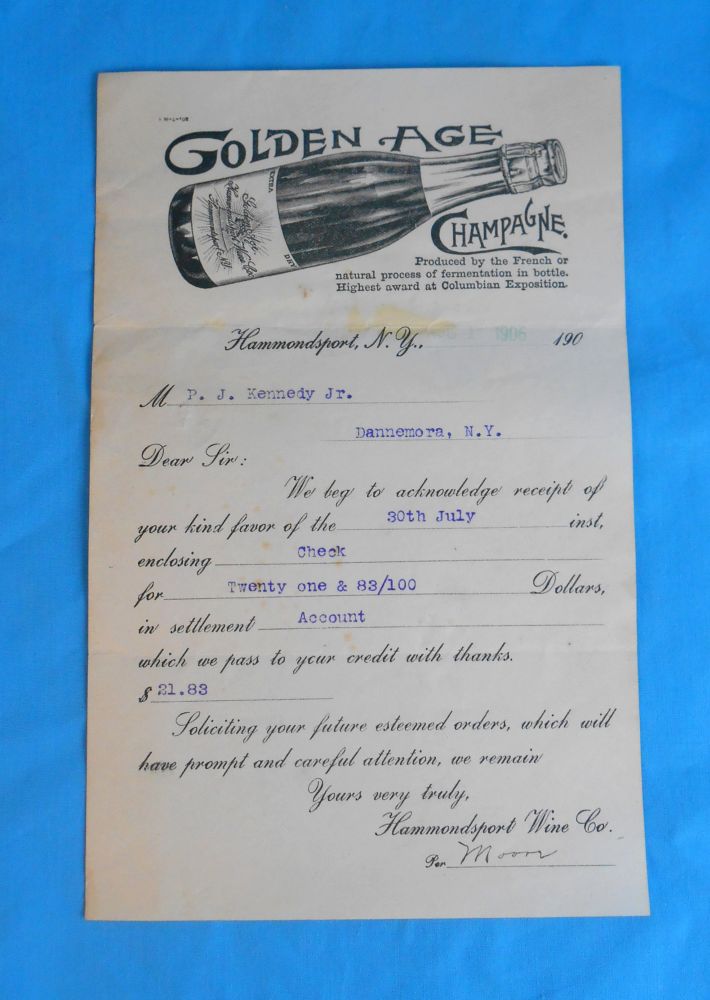 GOLDEN AGE
EXTRA
DRY
Golden Age
Hammondsport Wine Co.
Hammondsport N.Y.
CHAMPAGNE.
Produced by the French or
natural process of fermentation in bottle.
Highest award at Columbian Exposition.
Hammondsport, N. Y., 1 1906 190
M P. J. Kennedy Jr.
Dannemora, N.Y.
Dear Sir:
We beg to acknowledge receipt of
your kind favor of the 30th July inst,
enclosing Check
for Twenty one & 83/100 Dollars,
in settlement Account
which we pass to your credit with thanks.
$ 21.83
Soliciting your future esteemed orders, which will
have prompt and careful attention, we remain
Yours very truly,
Hammondsport Wine Co.
Per Moore